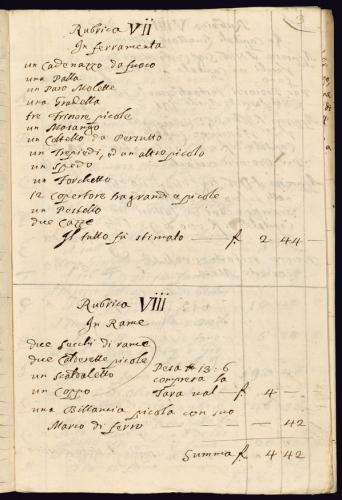 Rubrica VII
In ferramenta
un Cadenazzo da fuoco
una Palla
un Paro Molette
una Gradella
tre Trinore picole
un Moranzo
un Coltello da Persutto
un Trepiedi, ed un altro picolo
un Spedo
un Forchetto
12 Copertore tra grandi e picole
un Pestello
due Cazze
Il tutto fù stimato — f. 2 44 —
Rubrica VIII
In Rame
due Secchi di rame
due Calderette picole
un Scaldaletto Pesa 13:6
un Coppo compresa la
Tara val — f. 4 —
una Billancia picola con suo
Marco di ferro — — 42
Summa f. 4 42